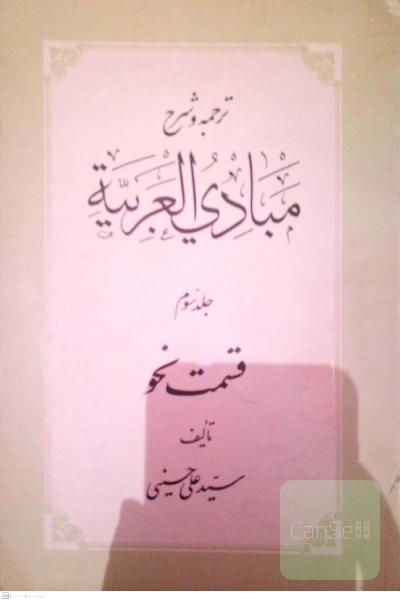 ترجمه و شرح
مَبَادِي العَرَبِيَّةِ
جلد سوم
قسمت نحو
تألیف
سیّد علی حسینی
CanSell